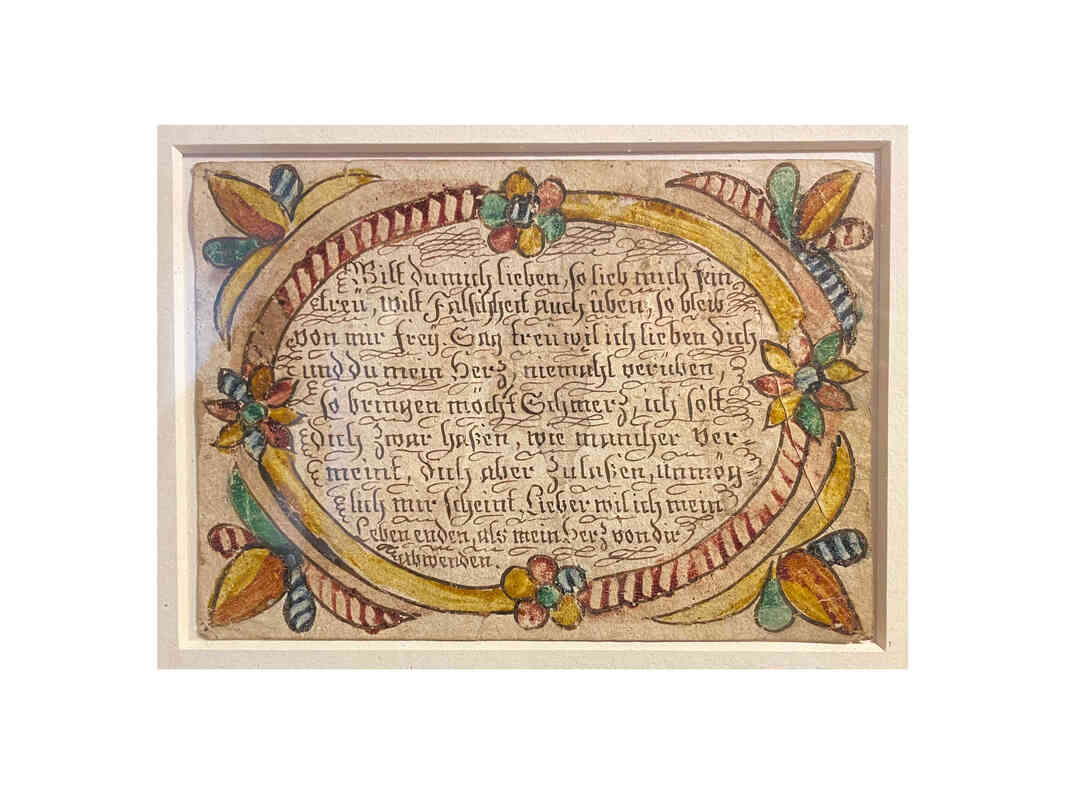 Wilt du mich lieben, so lieb mich fein
treü, wilt Falschheit auch üben, so bleib
von mir freÿ. Gag treü wil ich lieben dich
und du mein Herz, niemahl verüben,
so bringen möcht Schmerz, ich solt
dich zwar haßen, wie mancher ver-
meint, dich aber zulaßen, unmög
lich mir scheint, Lieber wil ich mein
Leben enden, als mein Herz von dir
abwenden.